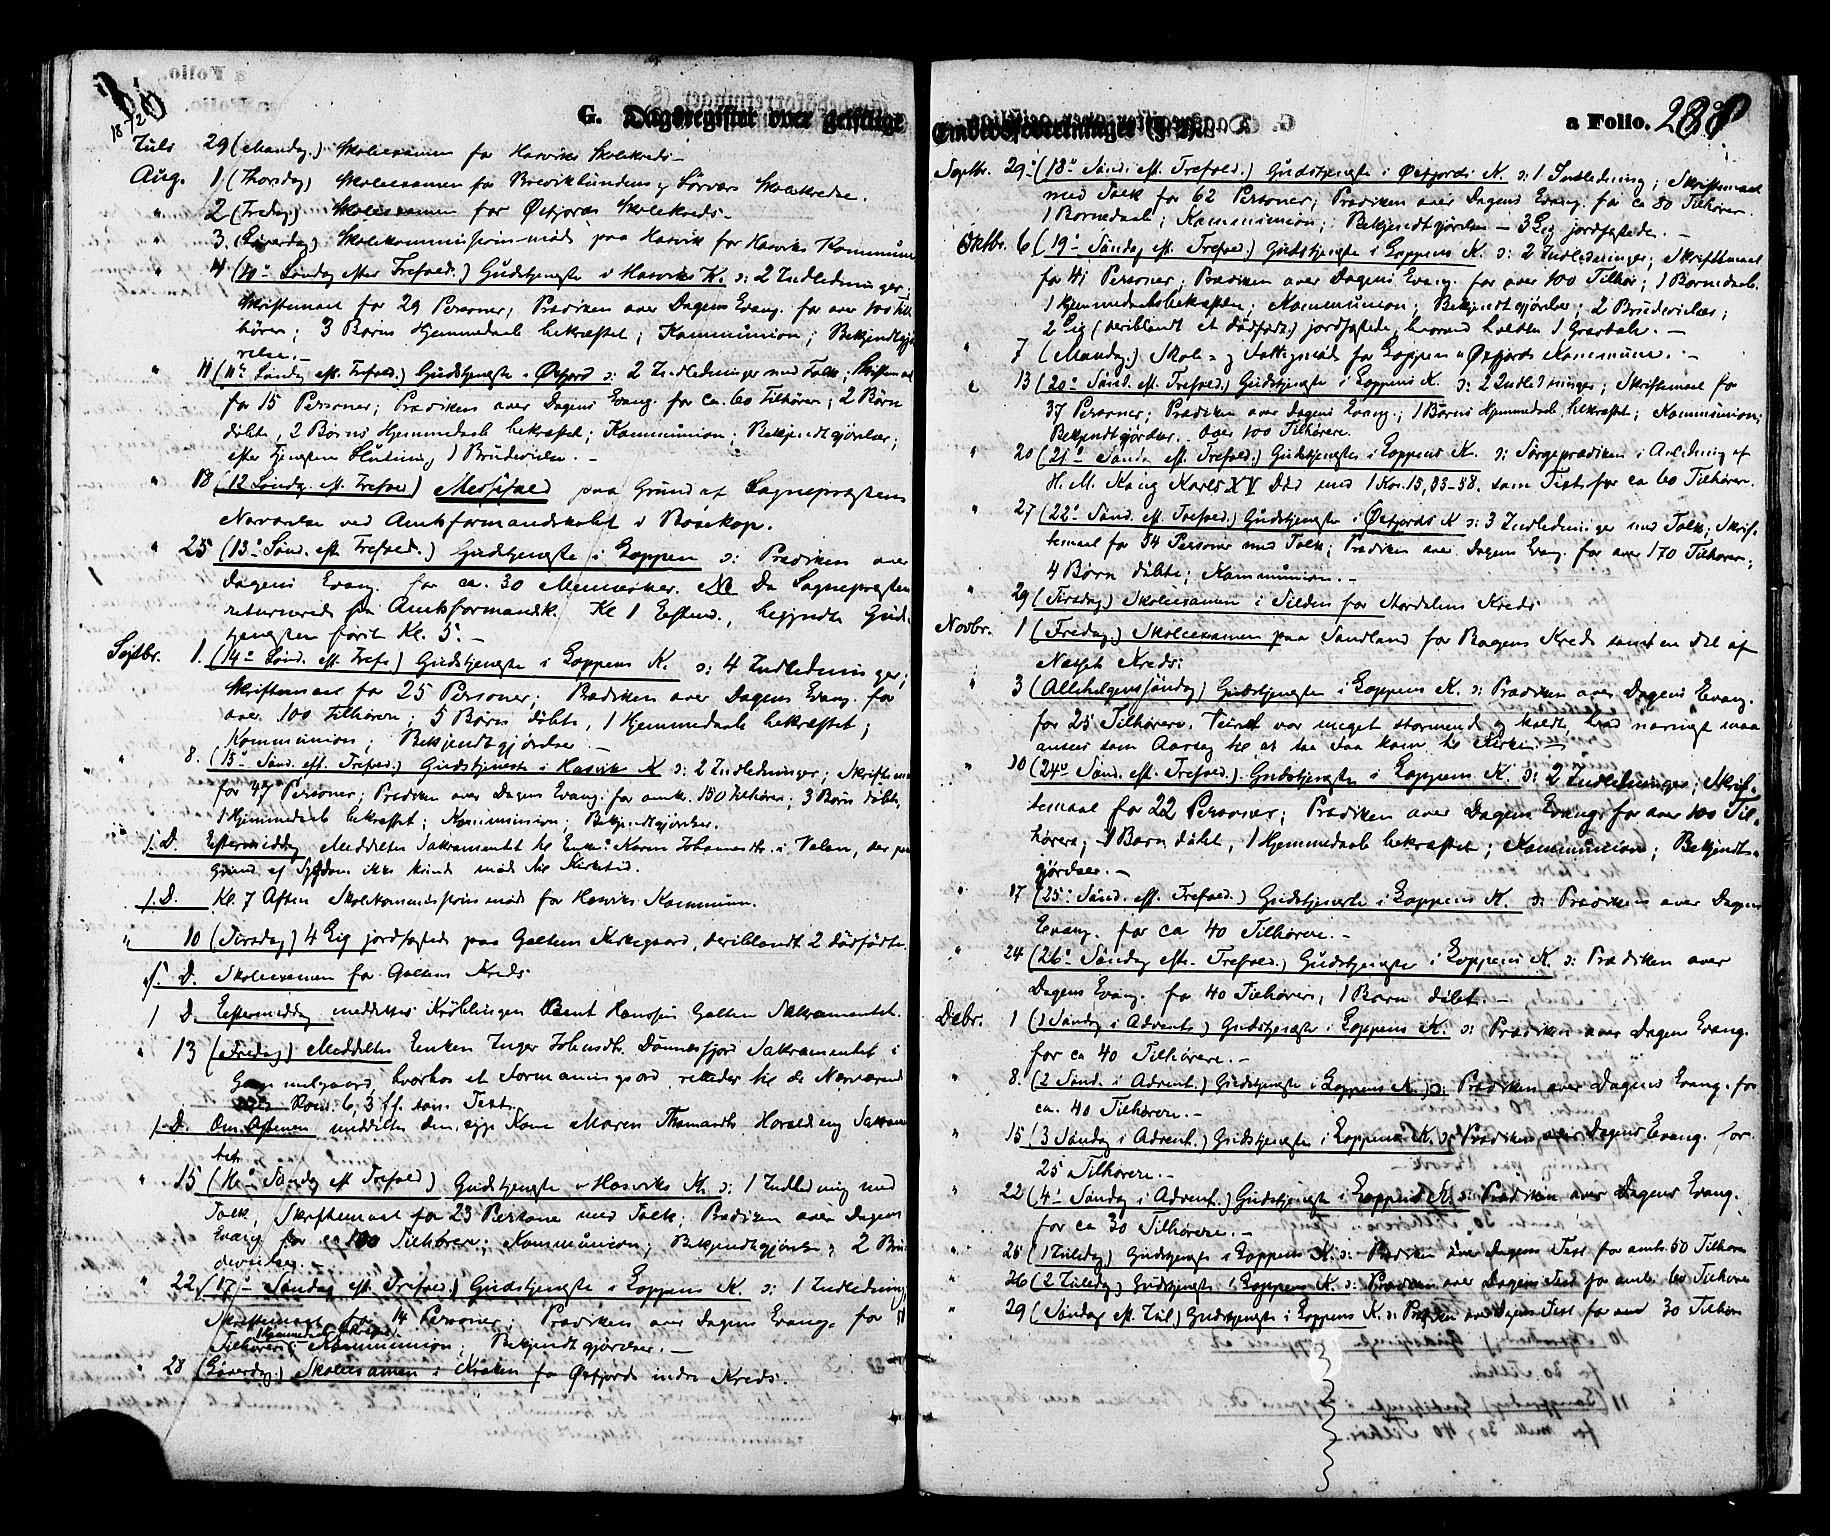 G. Dagsregister over geistlige
Juli 29 (Mandag.) Skoleexamen for Hasviks Skolekreds.
Aug. 1 (Thorsdag) Skoleexamen for Breviklundens og Sörvær Skolekredse.
" 2 (Fredag) Skoleexamen for Øxfjords Skolekreds.
" 3. (Löverdag) Skolekommissionsmöde paa Hasvik for Hasviks Kommune
" 4 (10de Söndag efter Trefold.) Gudstjeneste i Hasviks K. ɔ: 2 Indledninger;
Skriftemaal for 29 Personer; Prædiken over Dagens Evang. for over 100 Til-
hörere; 3 Börns Hjemmedaab bekræftet; Kommunion; Bekjendtgjö-
relse. –
" 11 (11te Söndag eft. Trefold.) Gudstjeneste i Øxfjord ɔ: 2 Indledninger med Tolk; Skriftemaal
for 15 Personer; Prædiken over Dagens Evang. for ca. 60 Tilhörere; 2 Börn
döbte, 2 Börns Hjemmedaab bekræftet; Kommunion; Bekjendtgjörelser;
efter Tjenestens Slutning 1 Brudevielse. –
" 18 (12 Söndag eft. Trefold) Messefald paa Grund af Sognepræstens
Nærværelse ved Amtsformandskabet i Bosekop.
" 25 (13de Sönd. eft. Trefold.) Gudstjeneste i Loppen ɔ: Prædiken over
Dagens Evang. for ca. 30 Mennesker. NB Da Sognepræsten
returnerede fra Amtsformandsk. Kl 1 Efterm., begyndte Gud-
tjenesten först Kl. 5. –
Septbr. 1. (14de Sönd. eft. Tref.) Gudstjeneste i Loppens K. ɔ: 4 Indledninger;
Skriftemaal for 25 Personer; Prædiken over Dagens Evang. for
over 100 Tilhörere; 5 Börn döbte, 1 Hjemmedaab bekræftet;
Kommunion; Bekjendtgjörelser. –
" 8. (15de Sönd. eft. Trefold.) Gudstjeneste i Hasvik K ɔ: 2 Indledninger; Skriftemaal
for 47 Personer; Prædiken over Dagens Evang. for omkr. 150 Tilhörere; 3 Börn döbte,
1 Hjemmedaab bekræftet; Kommunion; Bekjendtgjörelser.
s. D. Eftermiddag Meddeltes Sakramentet til Enke Karen Johannesdtr. i Valen, der paa
Grund af Sygdom ikke kunde möde til Kirketid.
s. D. Kl. 7 Aften Skolekommissionsmöde for Hasviks Kommune.
" 10 (Tirsdag) 4 Lig jordfæstede paa Galtens Kirkegaard, deriblandt 2 dödfödte.
s. D. Skoleexamen for Galtens Kreds.
s D. Eftermiddag meddeltes Kröblingen Bernt Hanssen Galten Sakramentet.
" 13 (Fredag) Meddeltes Enken Inger Johansdtr. Dönnesfjord Sakramentet i
Gammelgaard, hvorhos et Formaningsord rettedes til de Nærværende
over Rom. 6, 3 ff. som Text.
s. D. Om Aftenen meddeltes den syge Kone Maren Thomasdtr. Haraldeng Sakramen-
tet.
" 15 (16de Söndag eft Trefold) Gudstjeneste i Hasviks K. ɔ: 1 Indledning med
Tolk, Skriftemaal for 23 Personer med Tolk; Prædiken over Dagens
Evang for ca 100 Tilhörere; Kommunion; Bekjendtgjörelse; 2 Bru-
devielser. –
" 22 (17de Söndag eft. Trefold.) Gudstjeneste i Loppens K. ɔ: 1 Indledning
Skriftemaal for 14 Personer; Prædiken over Dagens Evang. for
Tilhörere; Kommunion; Bekjendtgjörelser. –
" 28 (Löverdag) Skoleexamen i Kroken for Øxfjords indre Kreds.
Embedsforretninger
a Folio. 288
Septbr. 29. (18de Sönd. eft. Trefold.) Gudstjeneste i Øxfjords K. ɔ: 1 Indledning; Skriftemaal
med Tolk for 62 Personer; Prædiken over Dagens Evang. for ca 80 Tilhörere.
1 Barnedaab; Kommunion; Bekjendtgjörelse – 3 Lig jordfæstede. –
Oktbr. 6 (19de Söndag eft. Trefold.) Gudstjeneste i Loppens K. ɔ: 2 Indledninger; Skriftemaal
for 41 Personer; Prædiken over Dagens Evang. for over 100 Tilhör.; 1 Barnedaab.
1 Hjemmedaabsbekræftelse; Kommunion; Bekjendtgjörelse; 2 Brudevielser;
2 Lig (deriblandt et dödfödt) jordfæstede, hvorved holdtes 1 Gravtale. –
" 7 (Mandag.) Skole- og Fattigmöde for Loppen og Øxfjords Kommune. –
" 13 (20de Sönd. eft. Trefold.) Gudstjeneste i Loppens K. ɔ: 2 Indledninger; Skriftemaal for
37 Personer; Prædiken over Dagens Evang.; 1 Börns Hjemmedaab bekræftet; Kommunion;
Bekjendtgjörelser. Over 100 Tilhörere.
" 20 (21de Söndag eft. Trefold.) Gudstjeneste i Loppens K. ɔ: Sørgeprædiken i Anledning af
H. M. Kong Karls XV Död med 1 Kor. 15, 53–58. som Text for ca 60 Tilhörere.
" 27 (22de Sönd. eft. Trefold.) Gudstjeneste i Øxfjords K ɔ: 3 Indledninger med Tolk, Skrif-
temaal for 54 Personer med Tolk; Prædiken over Dagens Evang. for over 170 Tilhörere;
4 Börn döbte; Kommunion. –
" 29 (Tirsdag) Skoleexamen i Tilden for Stordalens Kreds
Novbr. 1 (Fredag) Skoleexamen paa Sandland for Bagens Kreds samt en Del af
Kreds.
" 3 (Allehelgenssöndag) Gudstjeneste i Loppens K. ɔ: Prædiken over Dagens Evang.
for 25 Tilhörere. Veiret var meget stormende og koldt, hvad nærmest maa
ansees som Aarsag til at saa faa kom til Kirke. –
" 10 (24de Sönd. eft. Trefold.) Gudstjeneste i Loppens K. ɔ: 2 Indledninger; Skrif-
temaal for 22 Personer; Prædiken over Dagens Evang. for over 100 Til-
hörere; 1 Barn döbt, 1 Hjemmedaab bekræftet; Kommunion; Bekjendt-
gjörelser. –
" 17 (25de Sönd. eft. Trefold.) Gudstjeneste i Loppens K. ɔ: Prædiken over Dagens
Evang. for ca 40 Tilhörere. –
" 24 (26de Söndag eft. Trefold.) Gudstjeneste i Loppens K. ɔ: Prædiken over
Dagens Evang. for 40 Tilhörere, 1 Barn döbt. –
Decbr. 1 (1 Söndag i Advent.) Gudstjeneste i Loppens K. ɔ: Prædiken over Dagens Evang.
for ca 40 Tilhörere. –
" 8. (2 Sönd. i Advent.) Gudstjeneste i Loppens K. ɔ: Prædiken over Dagens Evang. for
ca. 40 Tilhörere. –
" 15 (3 Söndag i Advent.) Gudstjeneste i Loppens K. ɔ: Prædiken over Dagens Evang. for
25 Tilhörere. –
" 22 (4de Söndag i Advent.) Gudstjeneste i Loppens K. ɔ: Prædiken over Dagens Evang.
for ca 30 Tilhörere. –
" 25 (1 Juledag) Gudstjeneste i Loppens K. ɔ: Prædiken over Dagens Text for omtr. 50 Tilhörere
" 26 (2 Juledag) Gudstjeneste i Loppens K. ɔ: Prædiken over Dagens Text for omtr. 60 Tilhörere
" 29 (Söndag eft. Jul) Gudstjeneste i Loppens K. ɔ: Prædiken over Dagens Text for omtr 30 Tilhörere